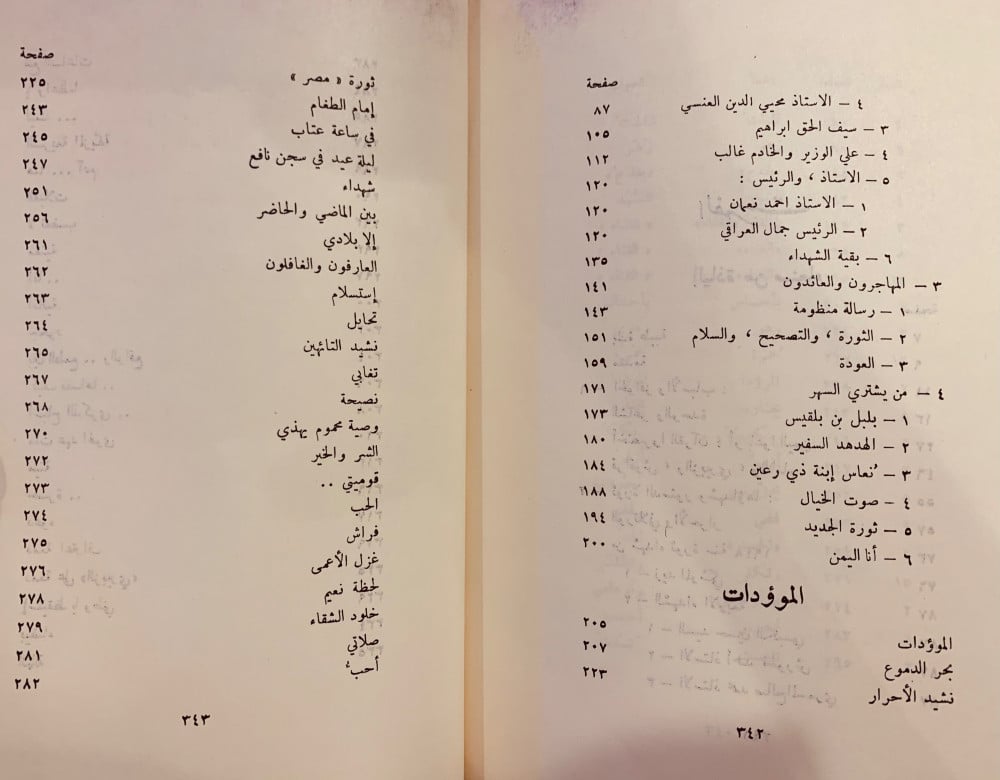 صفحة
٤ – الاستاذ محيي الدين العنسي ٨٧
٣ – سيف الحق ابراهيم ١٠٥
٤ – علي الوزير والخادم غالب ١١٢
٥ – الاستاذ ، والرئيس : ١٢٠
١ – الاستاذ احمد نعمان ١٢٠
٢ – الرئيس جمال العراقي ١٢٠
٦ – بقية الشهداء ١٣٥
٣ – المهاجرون والعائدون ١٤١
١ – رسالة منظومة ١٤٣
٢ – الثورة ، والتصحيح ، والسلام ١٥١
٣ – العودة ١٥٩
٤ – من يشتري السهر ١٧١
١ – بلبل بن بلقيس ١٧٣
٢ – الهدهد السفير ١٨٠
٣ – نُعاس إبنة ذي رعين ١٨٤
٤ – صوت الخيال ١٨٨
٥ – ثورة الجديد ١٩٤
٦ – أنا اليمن ٢٠٠
الموؤدات
الموؤدات ٢٠٥
بحر الدموع ٢٠٧
نشيد الأحرار ٢٢٣
٣٤٢
صفحة
ثورة « مصر » ٢٢٥
إمام الطغام ٢٤٣
في ساعة عتاب ٢٤٥
ليلة عيد في سجن نافع ٢٤٧
شهداء ٢٥١
بين الماضي والحاضر ٢٥٦
إلا بلادي ٢٦١
العارفون والغافلون ٢٦٢
إستسلام ٢٦٣
تحايل ٢٦٤
نشيد التائهين ٢٦٥
تغابي ٢٦٧
نصيحة ٢٦٨
وصية محموم يهذي ٢٧٠
الشر والخير ٢٧٢
قوميتي .. ٢٧٣
الحب ٢٧٤
فراش ٢٧٥
غزل الأعمى ٢٧٦
لحظة نعيم ٢٧٨
خلود الشقاء ٢٧٩
صلاتي ٢٨١
أحبُ ٢٨٢
٣٤٣